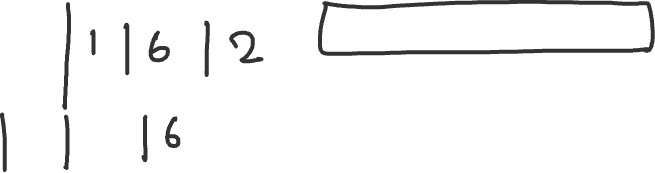 | 1 | 6 | 2
| | | 6